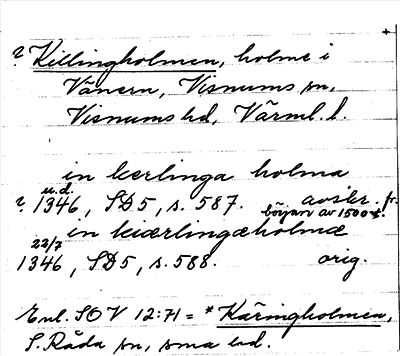 ? Killingholmen, holme i
Vänern, Visnums sn,
Visnums hd, Värml. l.
in kerlinga holma
u.d.
? 1346, SD 5, s. 587. avskr. fr.
början av 1500-t.
in kiærlingæholmæ
22/7
1346, SD 5, s. 588. orig.
Enl. SOV 12:71 = *Käringholmen,
S. Råda sn, sma hd.